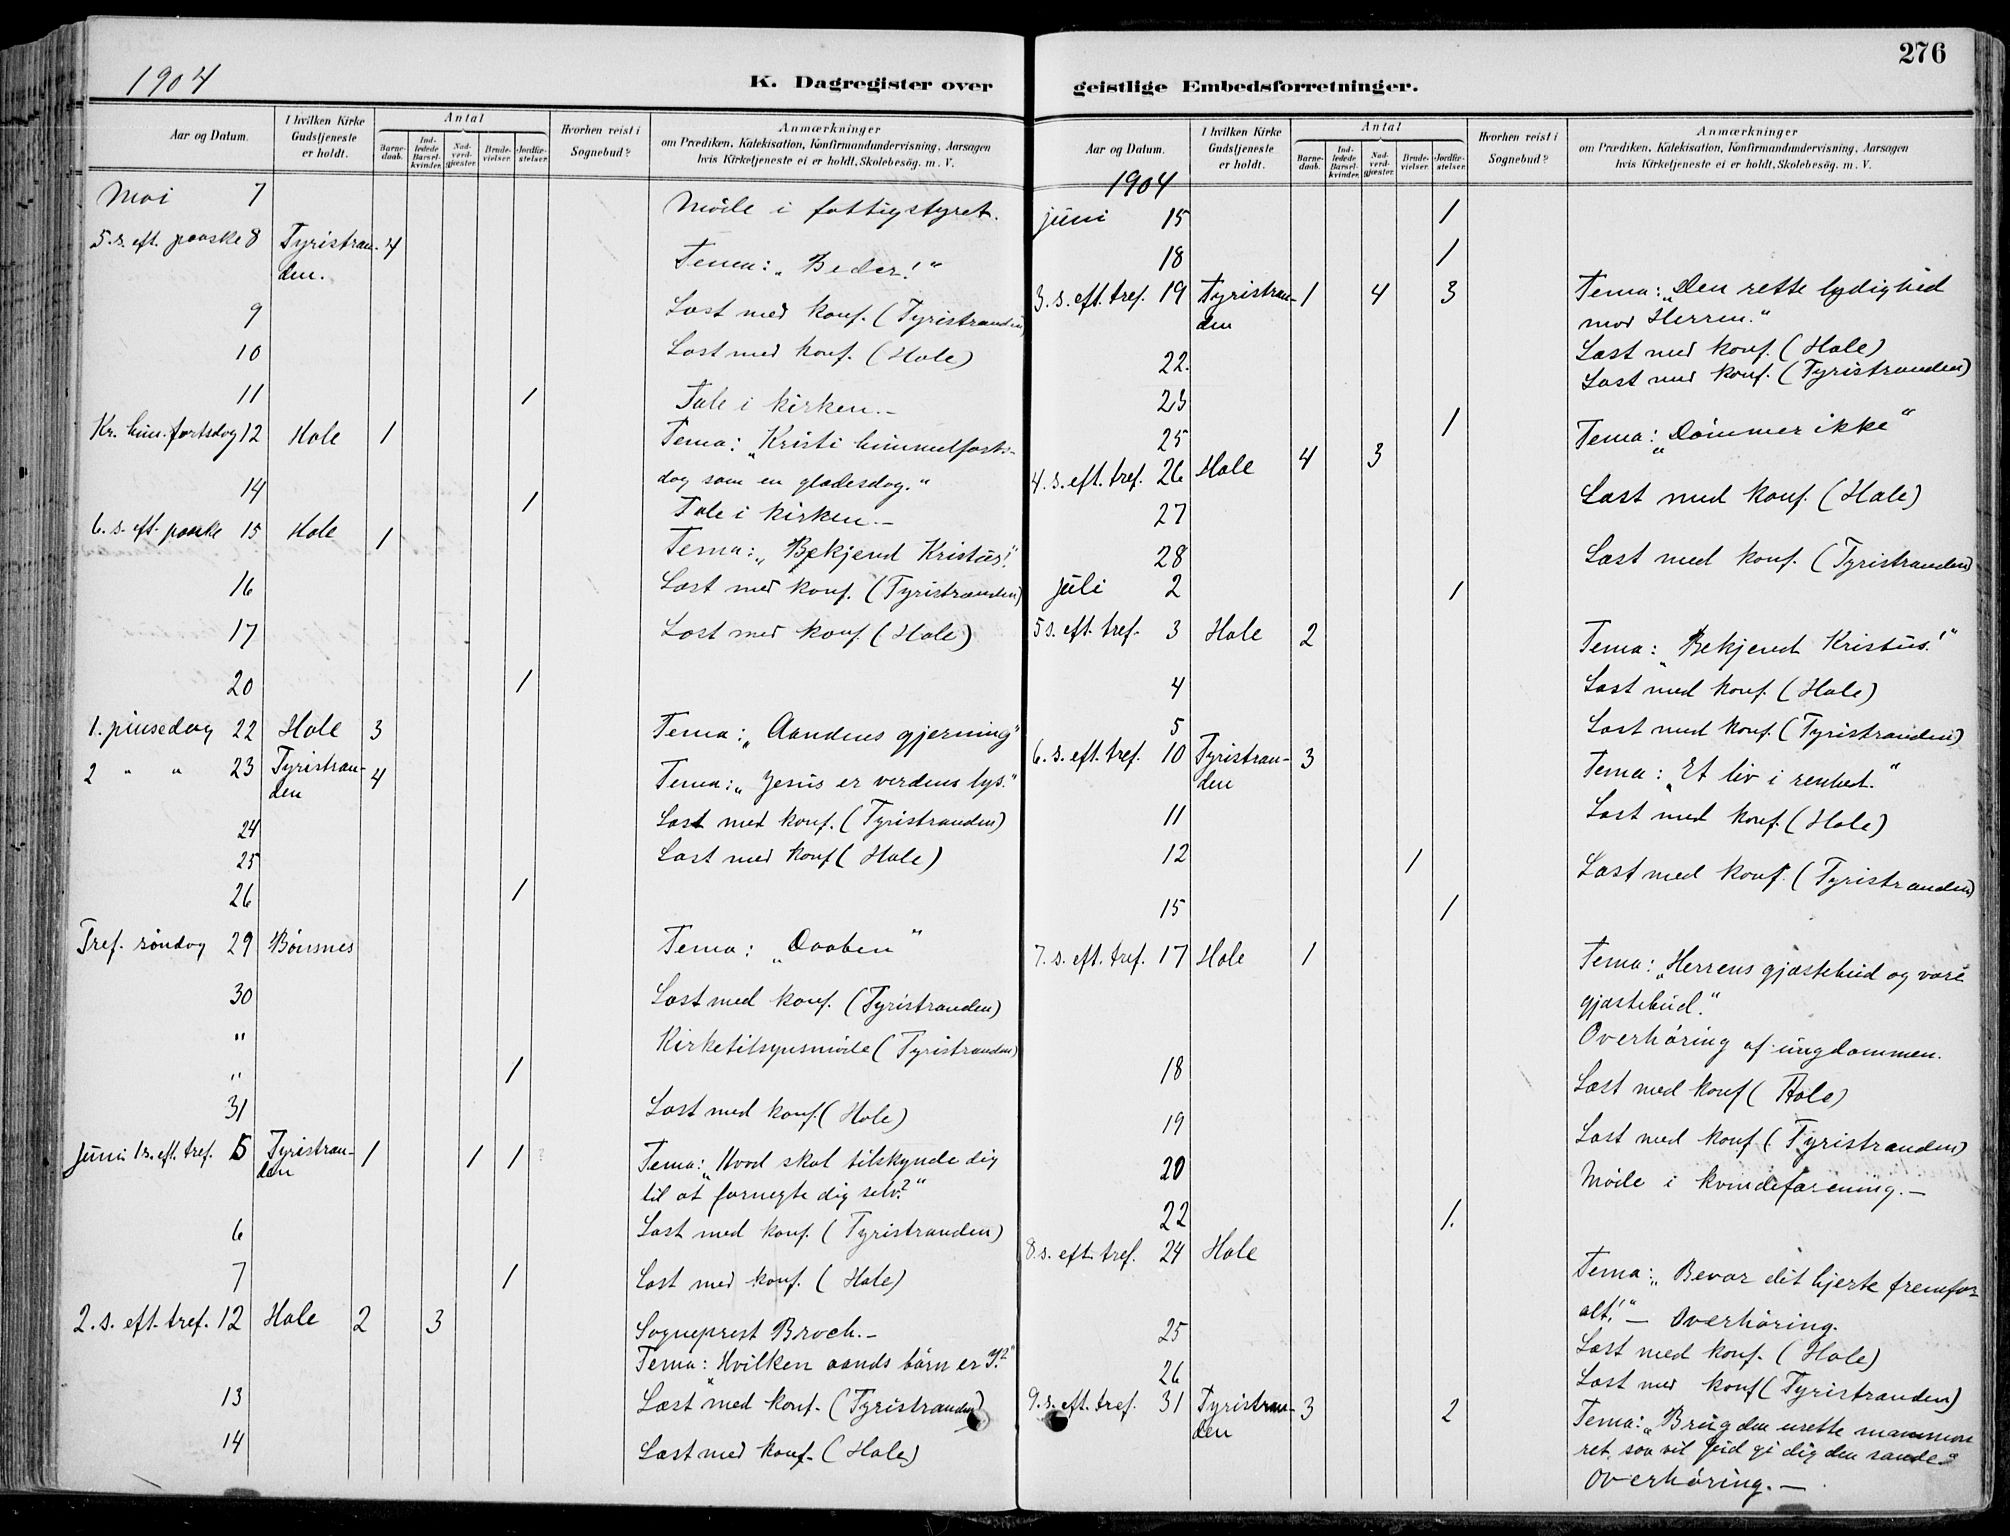 276
1904
K. Dagregister over geistlige Embedsforretninger.
Aar og Datum.
I hvilken Kirke Gudstjeneste er holdt.
Antal
Barnedaab.
Indledede Barselkvinder.
Nadverdgjæster.
Brudevielser.
Jordfæstelser.
Hvorhen reist i Sognebud?
Anmærkninger
om Prædiken, Katekisation, Konfirmandundervisning, Aarsagen
hvis Kirketjeneste ei er holdt, Skolebesög. m. V.
Mai 7 Möde i fattigstyret.
5. s. eft. paaske 8 Tyristran- 4
den. Tema: „Beder!“
9 Læst med konf. (Tyristranden)
10 Læst med konf. (Hole)
11 1 Tale i kirken.-
Kr. him.fartsdag 12 Hole 1 Tema: „Kristi himmelfarts-
dag som en glædesdag.“
14 1 Tale i kirken.-
6. s. eft. paaske 15 Hole 1 Tema: „Bekjend Kristus!“
16 Læst med konf. (Tyristranden)
17 Læst med konf. (Hole)
20 1
1. pinsedag 22 Hole 3 Tema: „Aandens gjerning“
2 " " 23 Tyristran- 4 Tema: „Jesus er verdens lys.“
den
24 Læst med konf. (Tyristranden)
25 Læst med konf (Hole)
26 1
Tref. söndag 29 Bönsnes Tema: „Daaben“
30 Læst med konf. (Tyristranden)
" Kirketilsynsmöde (Tyristranden)
" 1
31 Læst med konf. (Hole)
Juni 1 s. eft. tref. 5 Tyristran- 1 1 1 Tema: „Hvad skal tilskynde dig
den til at fornegte dig selv?“
6 Læst med konf. (Tyristranden)
7 1 Læst med konf. (Hole)
2. s. eft. tref. 12 Hole 2 3 Sogneprest Broch.-
Tema: „Hvilken aands börn er I?“
13 Læst med konf. (Tyristranden)
14 Læst med konf. (Hole)
Aar og Datum.
I hvilken Kirke Gudstjeneste er holdt.
Antal
Barnedaab.
Indledede Barselkvinder.
Nadverdgjæster.
Brudevielser.
Jordfæstelser.
Hvorhen reist i Sognebud?
Anmærkninger
om Prædiken, Katekisation, Konfirmandundervisning, Aarsagen
hvis Kirketjeneste ei er holdt, Skolebesög. m. V.
1904
juni 15 1
18 1
3. s. eft. tref. 19 Tyristran- 1 4 3 Tema: „Den rette lydighed
den mod Herren.“
22. Læst med konf. (Hole)
23 Læst med konf. (Tyristranden)
25 1
4. s. eft. tref. 26 Hole 4 3 Tema: „Dömmer ikke“
27 Læst med konf. (Hole)
28 Læst med konf. (Tyristranden)
juli 2 1
5 s. eft. tref. 3 Hole 2 Tema: „Bekjend Kristus!“
4 Læst med konf. (Hole)
5 Læst med konf. (Tyristranden)
6. s. eft. tref. 10 Tyristran- 3 Tema: „Et liv i renhed.“
den
11 Læst med konf. (Hole)
12 1 Læst med konf. (Tyristranden)
15 1
7. s. eft. tref. 17 Hole 1 Tema: „Herrens gjæstebud og vore
gjæstebud.“
Overhöring af ungdommen.
18 Læst med konf (Hole)
19 Læst med konf (Tyristranden)
20 Möde i kvindeforening.-
22 1.
8. s. eft. tref. 24 Hole Tema: „Bevar dit hjerte fremfor
alt!“ - Overhöring.
25 Læst med konf. (Hole)
26 Læst med konf (Tyristranden)
9. s. eft. tref. 31 Tyristran- 3 2 Tema: „Brug den urette mammon
den ret, saa vil Gud gi dig den sande.“
Overhöring.-